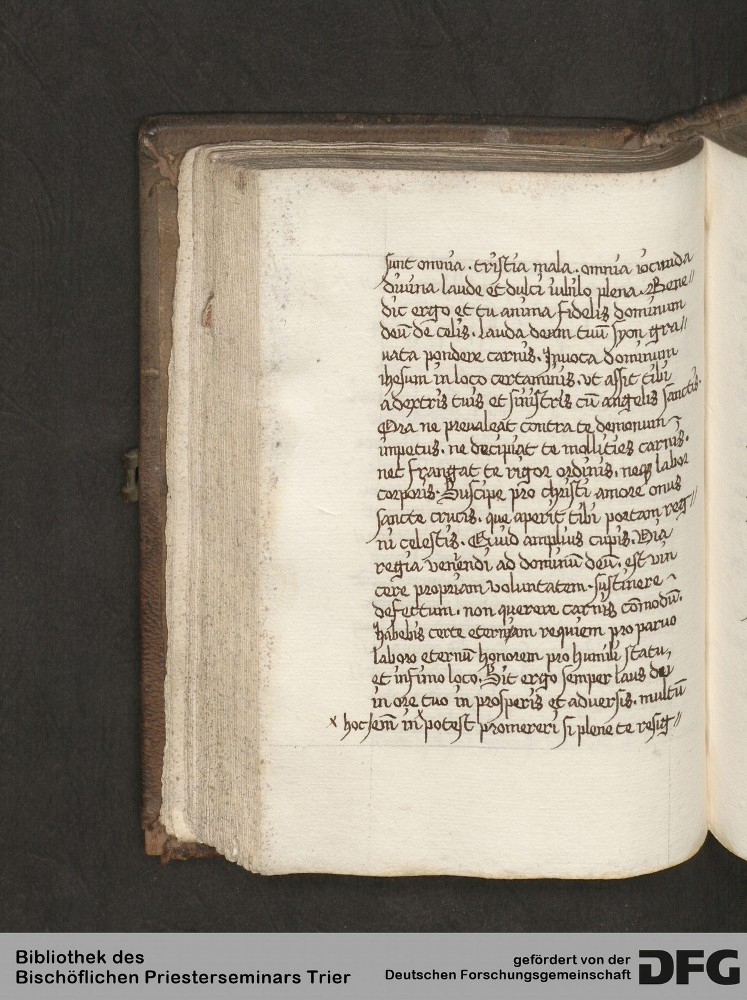 sunt omnia. tristia mala. omnia iocunda
diuina laude et dulci iubilo plena. Bene//
dic ergo et tu anima fidelis dominum
deū de celis. lauda deum tuū syon gra//
uata pondere carnis. Inuoca dominum
ihesum in loco certaminis. vt assit tibi
a dextris tuis et sinistris cū angelis sanctis.
Ora ne preualeat contra te demonum
impetus. ne decipiat te mollities carnis.
nec frangat te rigor ordinis. neqꝫ labor
corporis. Suscipe pro christi amore onus
sancte crucis. que aperit tibi portam reg//
ni celestis. Quid amplius cupis. Via
regia veniendi ad dominū deū. est vin
cere propriam voluntatem. sustinere
defectum. non querere carnis cōmodū.
habebis certe eternam requiem pro paruo
labore eternū honorem pro humili statu,
et infimo loco. Sit ergo semper laus dei
in ore tuo in prosperis et aduersis. multū
x hoc potest promereri si plene te resig//
Bibliothek des
Bischöflichen Priesterseminars Trier
gefördert von der
Deutschen Forschungsgemeinschaft
DFG